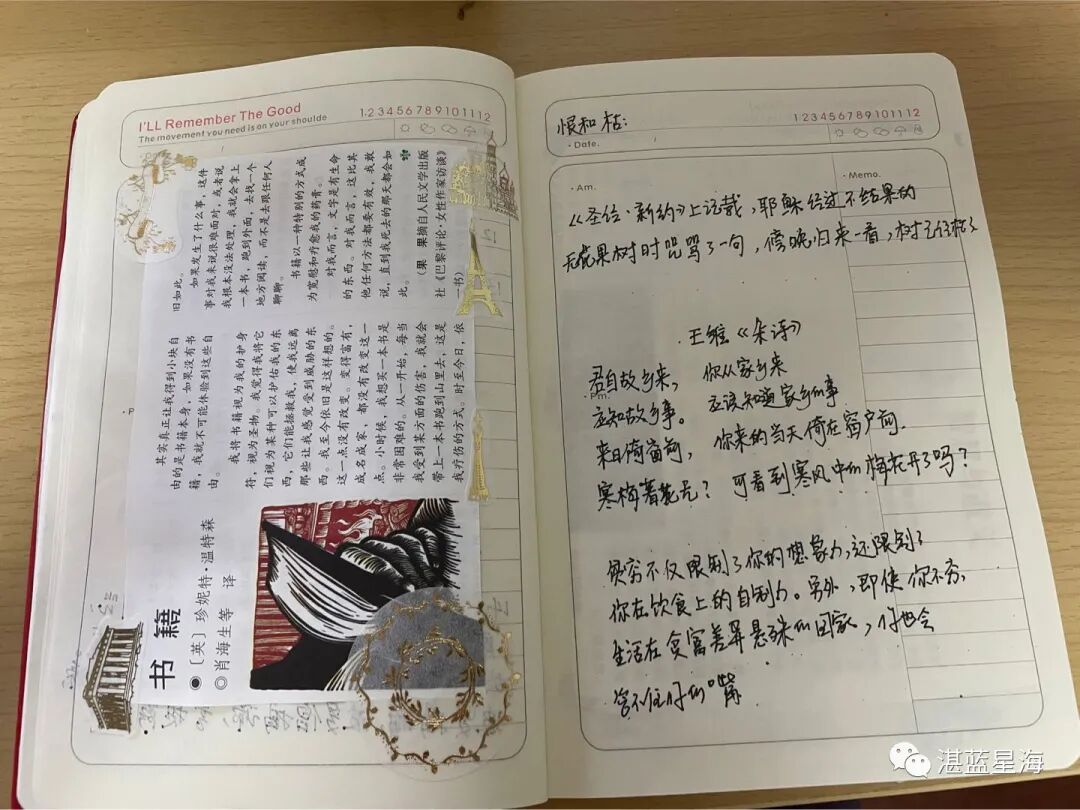 I'LL Remember The Good
The movement you need is on your shoulde
1·2 3 4 5 6 7 8 9 10 11 12
书籍
●〔英〕珍妮特·温特森
◎肖海生等 译
其实真正让我得到小块自
由的是书籍本身，如果没有书
籍，我就不可能体验到这些自
由。
我将书籍视为我的护身
符，视为圣物。我觉得我将它
们视为某种可以护佑我的东
西，它们能拯救我，使我远离
那些让我感觉受到威胁的东
西。我至今依旧是这样想的。
这一点没有改变。变得富有，
成名成家，都没有改变这一
点。小时候，我想买一本书是
非常困难的。从一开始，每当
我受到某方面的伤害，我就会
带上一本书跑到山里去，这是
我疗伤的方式。时至今日，依
旧如此。
如果发生了什么事，这件
事对我来说很难面对，或者说
我根本没法处理，我就会拿上
一本书，跑到外面，去找一个
地方阅读，而不是去跟任何人
聊聊。
书籍以一种特别的方式成
为宽慰和疗愈我的药膏。
对我而言，文字是有生命
的东西。对我而言，这比其
他任何方法都要有效，我敢
说，直到我死去的那天都会如
此。
（果 果摘自人民文学出版
社《巴黎评论·女性作家访谈》
一书）
恨和枯：
1 2 3 4 5 6 7 8 9 10 11 12
·Date.
·Am.
·Memo.
《圣经·新约》上记载，耶稣经过不结果的
无花果树时咒骂了一句，傍晚归来一看，树已经枯了
王维《杂诗》
君自故乡来， 你从家乡来
·Pm.
应知故乡事。 应该知道家乡的事
来日倚窗前， 你来的当天倚在窗户前.
寒梅着花未？ 可看到寒风中的梅花开了吗？
贫穷不仅限制了你的想象力，还限制了
你在饮食上的自制力。另外，即使你不穷.
生活在贫富差异悬殊的国家，你也会
管不住你的嘴
湛蓝星海